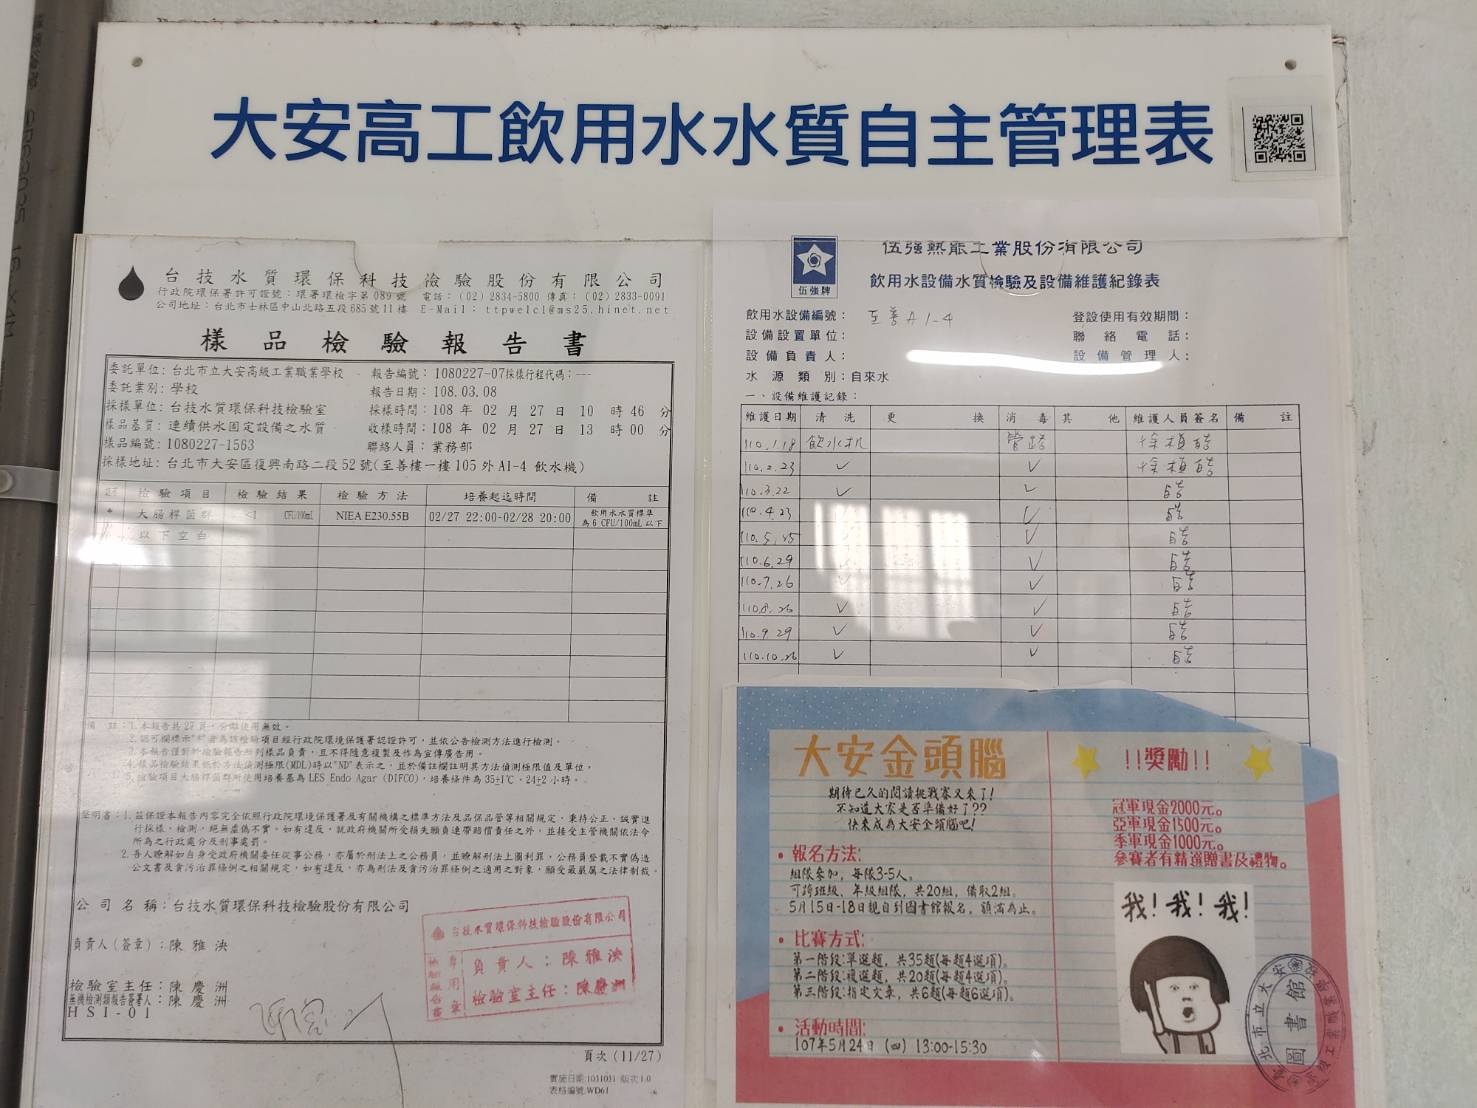 大安高工飲用水水質自主管理表
台技水質環保科技檢驗股份有限公司
行政院環保署許可證號：環署環檢字第089號 電話：(02) 2834-5800 傳真：(02) 2833-0091
公司地址：台北市士林區中山北路五段685號11樓 E-Mail： ttpwelcl@ms25.hinet.net
樣品檢驗報告書
委託單位：台北市立大安高級工業職業學校 報告編號：1080227-07採樣行程代碼：---
委託業別：學校 報告日期：108.03.08
採樣單位：台技水質環保科技檢驗室 採樣時間：108 年 02 月 27 日 10 時 46 分
樣品基質：連續供水固定設備之水質 收樣時間：108 年 02 月 27 日 13 時 00 分
樣品編號：1080227-1563 聯絡人員：業務部
採樣地址：台北市大安區復興南路二段52號(至善樓一樓105外AI-4 飲水機)
檢驗項目 檢驗結果 檢驗方法 培養起迄時間 備註
* 大腸桿菌群 <1 CFU/100mL NIEA E230.55B 02/27 22:00-02/28 20:00 飲用水水質標準為 6 CFU/100mL 以下
以下空白
備 註：1.本報告共27頁，分離使用無效。
2.認可欄標示"*"者為該檢驗項目經行政院環境保護署認證許可，並依公告檢測方法進行檢測。
3.本報告僅對於檢驗報告所列樣品負責，且不得隨意複製及作為宣傳廣告用。
4.樣品檢驗結果低於方法偵測極限(MDL)時以"ND"表示之，並於備註欄註明其方法偵測極限值及單位。
5.檢驗項目大腸桿菌群所使用培養基為 LES Endo Agar (DIFCO)，培養條件為 35±1℃，24±2 小時。
證明書：1.茲保證本報告內容完全依照行政院環境保護署及有關機構之標準方法及品保品管等相關規定，秉持公正、誠實進
行採樣、檢測，絕無虛偽不實。如有違反，就政府機關所受損失願負連帶賠償責任之外，並接受主管機關依法令
所為之行政處分及刑事處罰。
2.吾人瞭解如自身受政府機關委任從事公務，亦屬於刑法上之公務員，並瞭解刑法上圖利罪，公務員登載不實偽造
公文書及貪污治罪條例之相關規定，如有違反，亦為刑法及貪污治罪條例之適用之對象，願受最嚴厲之法律制裁。
公司名稱：台技水質環保科技檢驗股份有限公司
負責人(簽章)：陳雅泱
檢驗室主任：陳慶洲
無機檢測類報告簽署人：陳慶洲
HSI-01
台技水質環保科技檢驗股份有限公司
負責人：陳雅泱
檢驗室主任：陳慶洲
頁次 (11/27)
實施日期:1031031 版次:1.0
表格編號:WD61
伍強牌
伍強熱能工業股份有限公司
飲用水設備水質檢驗及設備維護紀錄表
飲用水設備編號： 至善A1-4 登設使用有效期間：
設備設置單位： 聯絡電話：
設備負責人： 設備管理人：
水源類別：自來水
一、設備維護記錄：
維護日期 清洗 更換 消毒 其他 維護人員簽名 備註
110.1.18 飲水机 管路
110.2.23 ✓ ✓
110.3.22 ✓ ✓
110.4.23 ✓
110.5.25 ✓
110.6.29 ✓
110.7.26 ✓
110.8.26 ✓ ✓
110.9.29 ✓ ✓
110.10.26 ✓ ✓
大安金頭腦
期待已久的閱讀挑戰賽又來了!
不知道大家是否準備好了??
快來成為大安金頭腦吧!
• 報名方法:
組隊參加，每隊3-5人。
可跨班級、年級組隊，共20組，備取2組。
5月15日-18日親自到圖書館報名，額滿為止。
• 比賽方式:
第一階段:單選題，共35題(每題4選項)。
第二階段:複選題，共20題(每題4選項)。
第三階段:指定文章，共6題(每題6選項)。
• 活動時間:
107年5月24日 (四) 13:00-15:30
!!獎勵!!
冠軍現金2000元。
亞軍現金1500元。
季軍現金1000元。
參賽者有精選贈書及禮物。
我! 我! 我!
圖書館